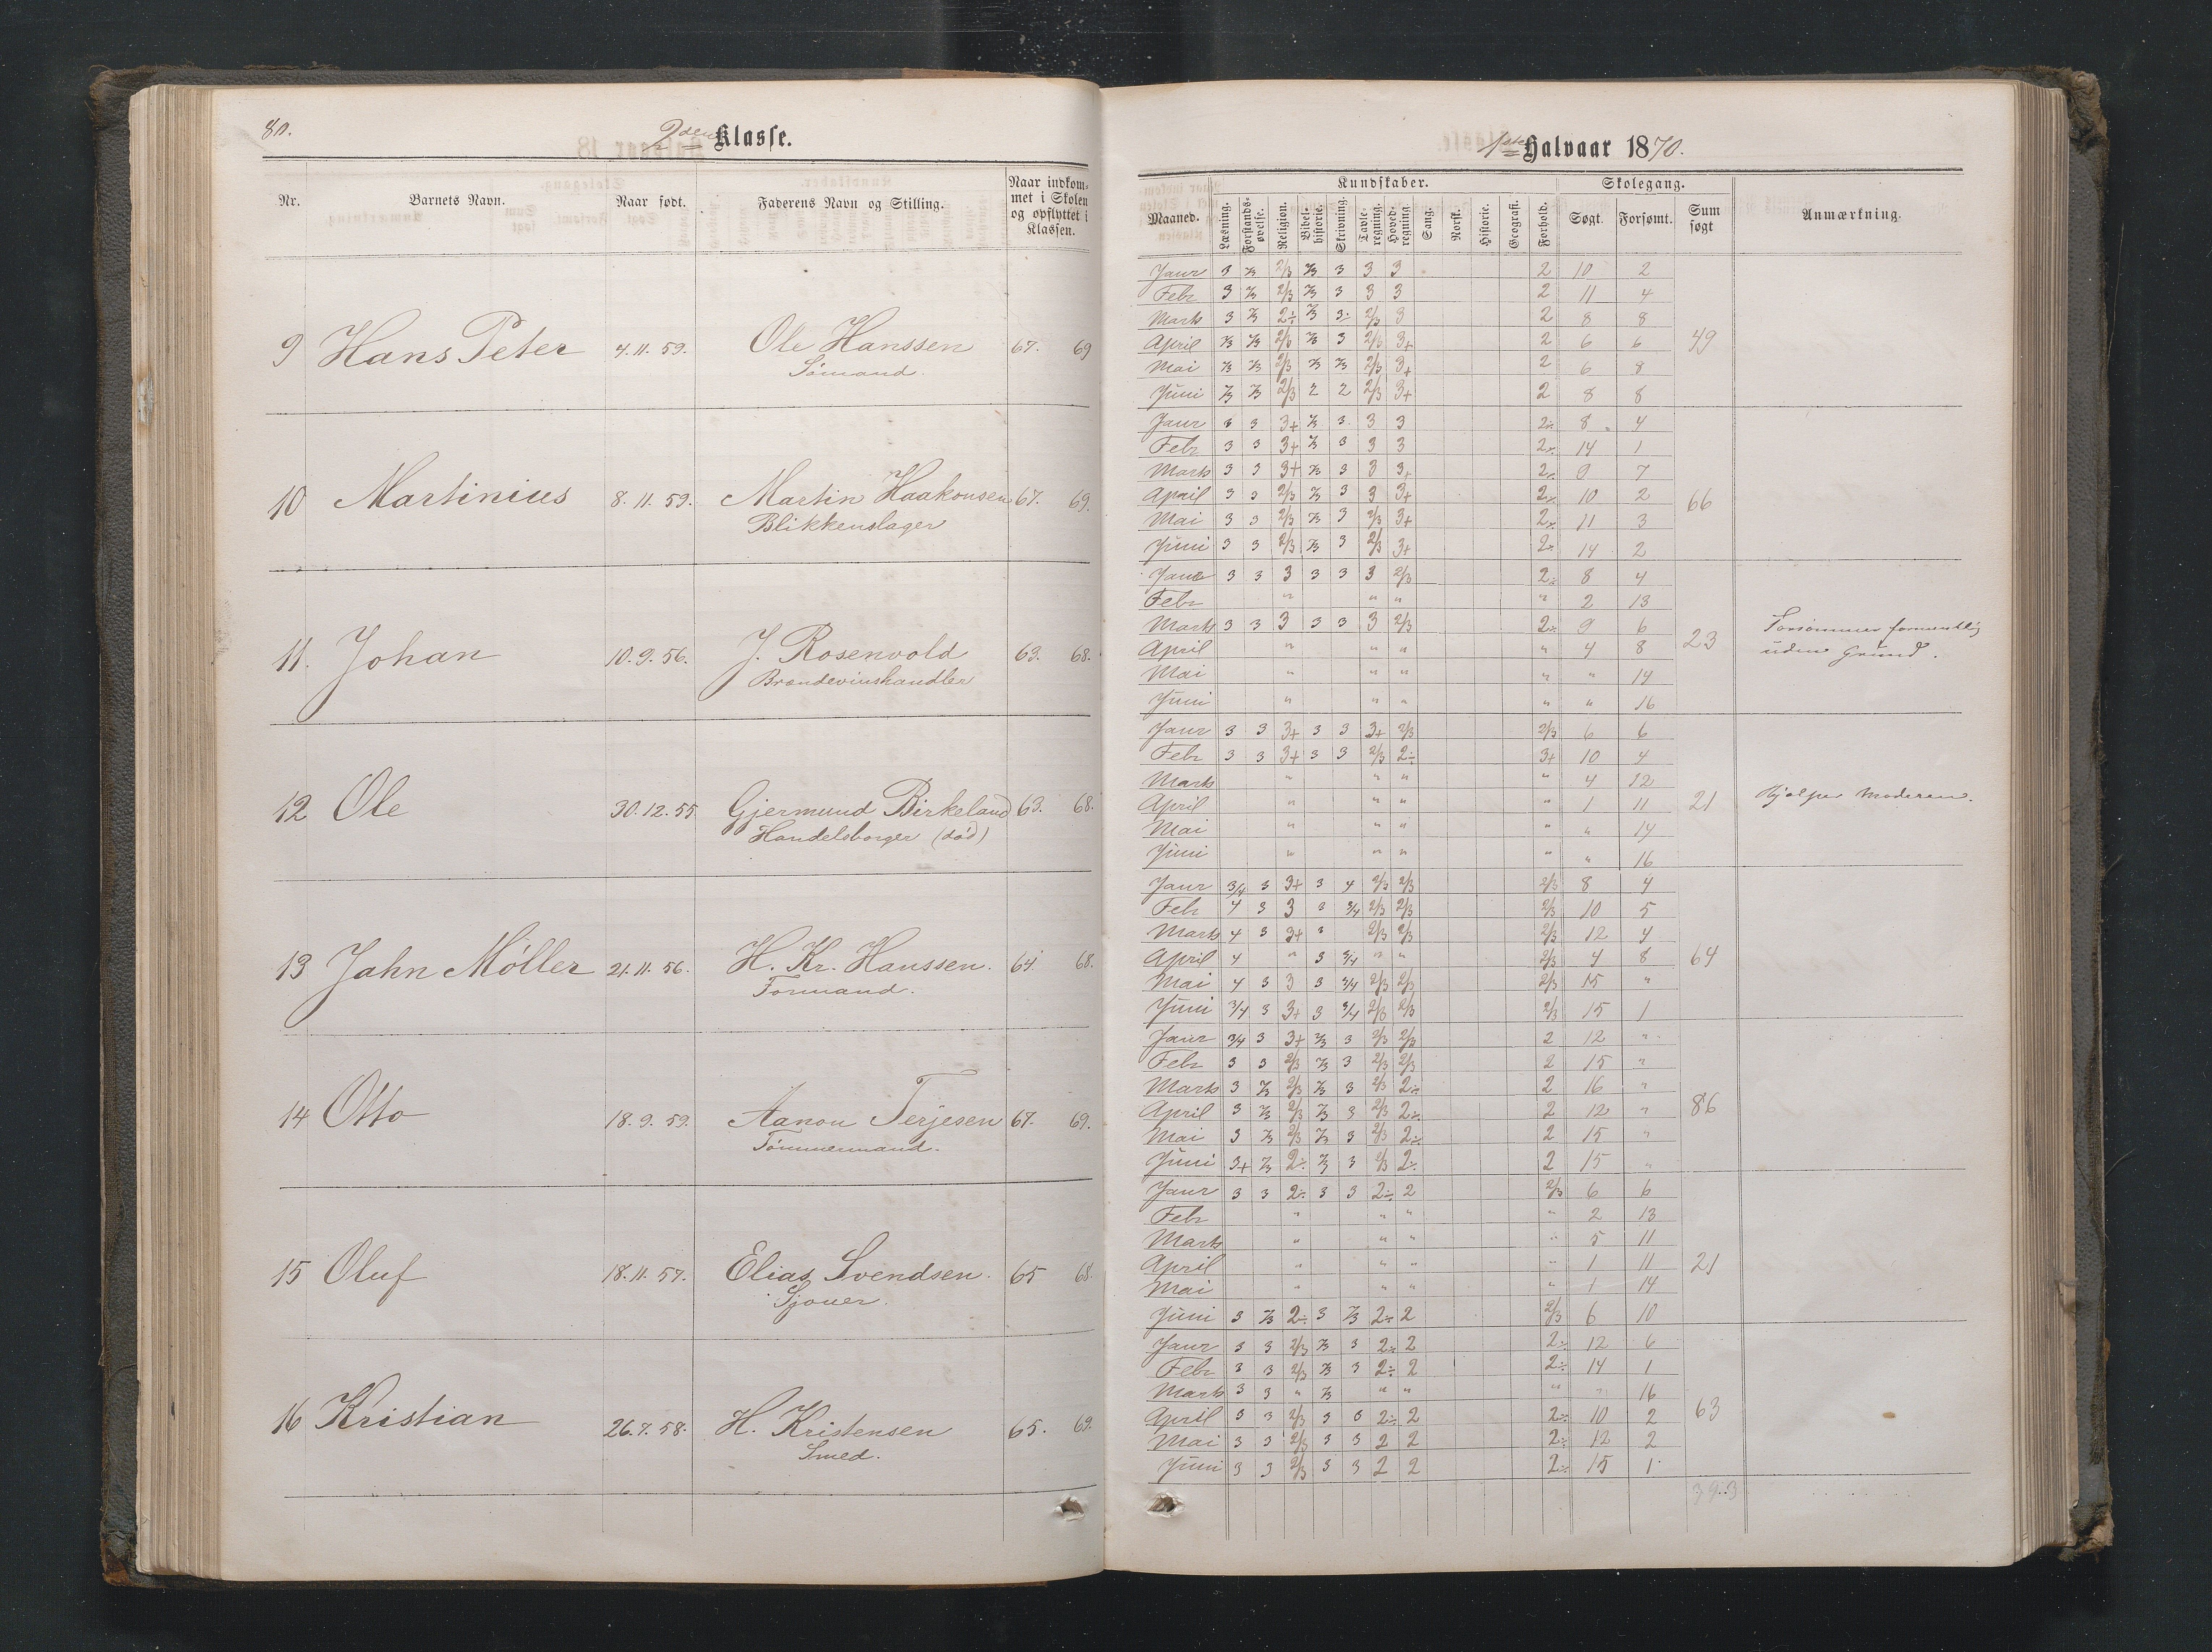 80.
2den Klasse.
Nr. Barnets Navn. Naar født. Faderens Navn og Stilling. Naar indkommet i Skolen og opflyttet i Klassen.
9 Hans Peter 4.11.59. Ole Hanssen 67. 69
Sømand.
10 Martinius 8.11.59. Martin Haakonsen 67. 69.
Blikkenslager
11. Johan 10.9.56. J. Rosenvold 63. 68.
Brændevinshandler
12 Ole 30.12.55 Gjermund Birkeland 63. 68.
Handelsborger (død)
13 Jahn Möller 21.11.56. H. Kr. Hanssen. 64. 68.
Formand.
14 Otto 18.9.59. Aanon Terjesen 67. 69.
Tømmermand.
15 Oluf 18.11.57. Elias Svendsen. 65 68.
Sjouer.
16 Kristian 26.7.58. H. Kristensen 65. 69.
Smed.
1ste Halvaar 1870.
Kundskaber. Skolegang.
Maaned. Læsning. Forstandsøvelse. Religion. Bibelhistorie. Skrivning. Tavleregning. Hovedregning. Sang. Norsk. Historie. Geografi. Forhold. Søgt. Forsømt. Sum søgt Anmærkning.
Janr 3 2/3 2/3 2/3 3 3 3 2 10 2
Febr 3 2/3 2/3 2/3 3 3 3 2 11 4
Marts 3 2/3 2÷ 2/3 3. 2/3 3 2 8 8
April 2/3 2/3 2/3 2/3 3 2/3 3+ 2 6 6 49
Mai 2/3 2/3 2/3 2/3 2/3 2/3 3+ 2 6 8
Juni 2/3 2/3 2/3 2 2 2/3 3+ 2 8 8
Janr 3 3 3+ 2/3 3 3 3 2÷ 8 4
Febr 3 3 3+ 2/3 3 3 3 2÷ 14 1
Marts 3 3 3+ 2/3 3 3 3+ 2÷ 9 7
April 3 3 2/3 2/3 3 3 3+ 2÷ 10 2 66
Mai 3 3 2/3 2/3 3 2/3 3+ 2÷ 11 3
Juni 3 3 2/3 2/3 3 2/3 3+ 2÷ 14 2
Janr 3 3 3 3 3 3 2/3 2÷ 8 4
Febr " " " " 2 13
Marts 3 3 3 3 3 3 2/3 2÷ 9 6 Forsømmer formentlig
April " " " " 4 8 23 uden Grund.
Mai " " " " " 14
Juni " " " " " 16
Janr 3 3 3+ 3 3 3+ 2/3 2/3 6 6
Febr 3 3 3+ 3 3 2/3 2÷ 3+ 10 4
Marts " " " " 4 12
April " " " " 1 11 21 Hjælper Moderen.
Mai " " " " " 14
Juni " " " " " 16
Janr 3/4 3 3+ 3 4 2/3 2/3 2/3 8 4
Febr 4 3 3 3 3/4 2/3 2/3 2/3 10 5
Marts 4 3 3+ 3 2/3 2/3 2/3 12 4
April 4 " 3 3/4 " " 2/3 4 8 64
Mai 4 3 3 3 3/4 2/3 2/3 2/3 15 "
Juni 3/4 3 3+ 3 3/4 2/3 2/3 2/3 15 1
Janr 3/4 3 3+ 2/3 3 2/3 2/3 2 12 "
Febr 3 3 2/3 2/3 3 2/3 2/3 2 15 "
Marts 3 2/3 2/3 2/3 3 2/3 2÷ 2 16 "
April 3 2/3 2/3 2/3 3 2/3 2÷ 2 12 " 86
Mai 3 2/3 2/3 2/3 3 2/3 2÷ 2 15 "
Juni 3+ 2/3 2÷ 2/3 3 2/3 2÷ 2 15 "
Janr 3 3 2÷ 3 3 2÷ 2 2/3 6 6
Febr " " " " 2 13
Marts " " " " 5 11
April " " " " 1 11 21
Mai " " " " 1 14
Juni 3 2/3 2÷ 3 2/3 2÷ 2 2/3 6 10
Janr 3 3 2/3 2/3 3 2÷ 2 2÷ 12 6
Febr 3 3 2/3 2/3 3 2÷ 2 2÷ 14 1
Marts 3 3 " 2/3 " " " " 16
April 3 3 2/3 3 3 2÷ 2 2÷ 10 2 63
Mai 3 3 2/3 3 3 2 2 2÷ 12 2
Juni 3 3 2/3 3 3 2 2 2÷ 15 1
393